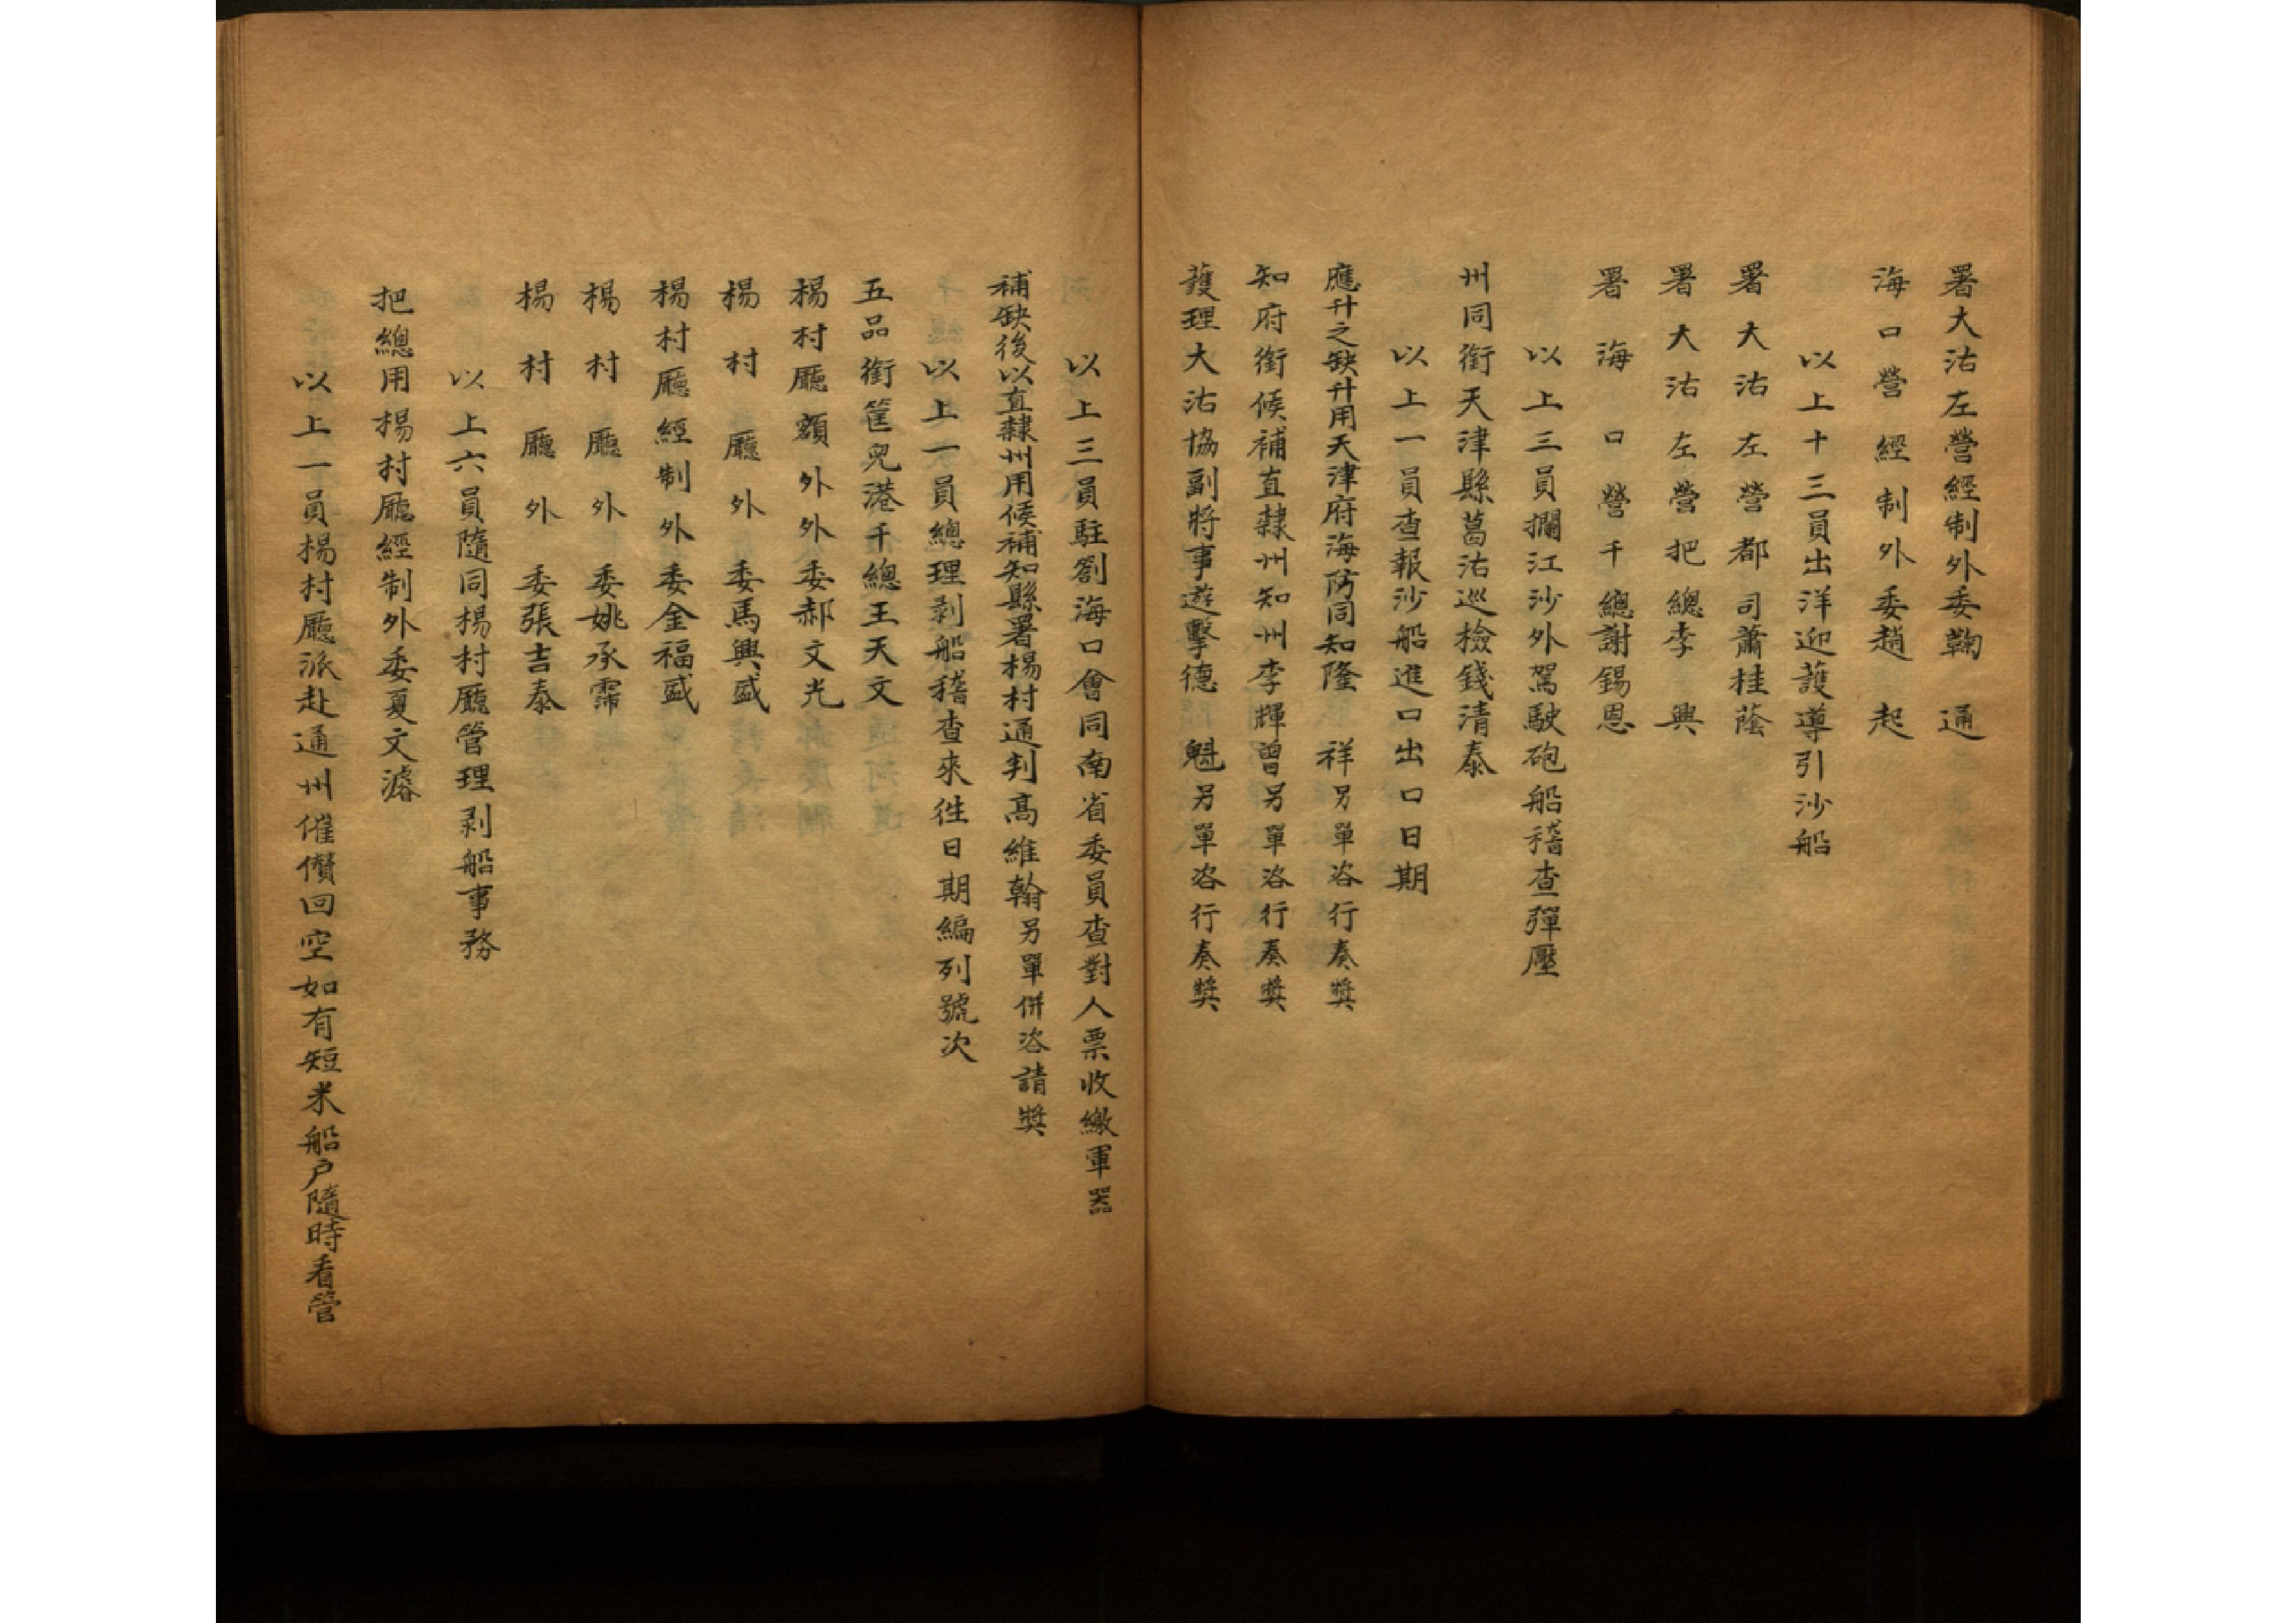 署大沽左營經制外委鞠通
海口營經制外委趙起
以上十三員出洋迎護導引沙船
署大沽左營都司蕭桂蔭
署大沽左營把總李興
署海口營千總謝錫恩
以上三員攔江沙外駕駛砲船稽查彈壓
州同銜天津縣葛沽巡檢錢清泰
以上一員查報沙船進口出口日期
應升之缺升用天津府海防同知隆祥另單咨行奏獎
知府銜候補直隸州知州李輝曾另單咨行奏獎
護理大沽協副將事遊擊德魁另單咨行奏獎
以上三員駐劄海口會同南省委員查對人票收繳軍器
補缺後以直隸州用候補知縣署楊村通判高維翰另單併咨請獎
以上一員總理剥船稽查來徃日期編列號次
五品銜筐兒港千總王天文
楊村廳額外外委郝文光
楊村廳外委馬興盛
楊村廳經制外委金福盛
楊村廳外委姚承霈
楊村廳外委張吉泰
以上六員隨同楊村廳管理剥船事務
把總用楊村廳經制外委夏文濬
以上一員楊村廳派赴通州催儹回空如有短米船户隨時看管